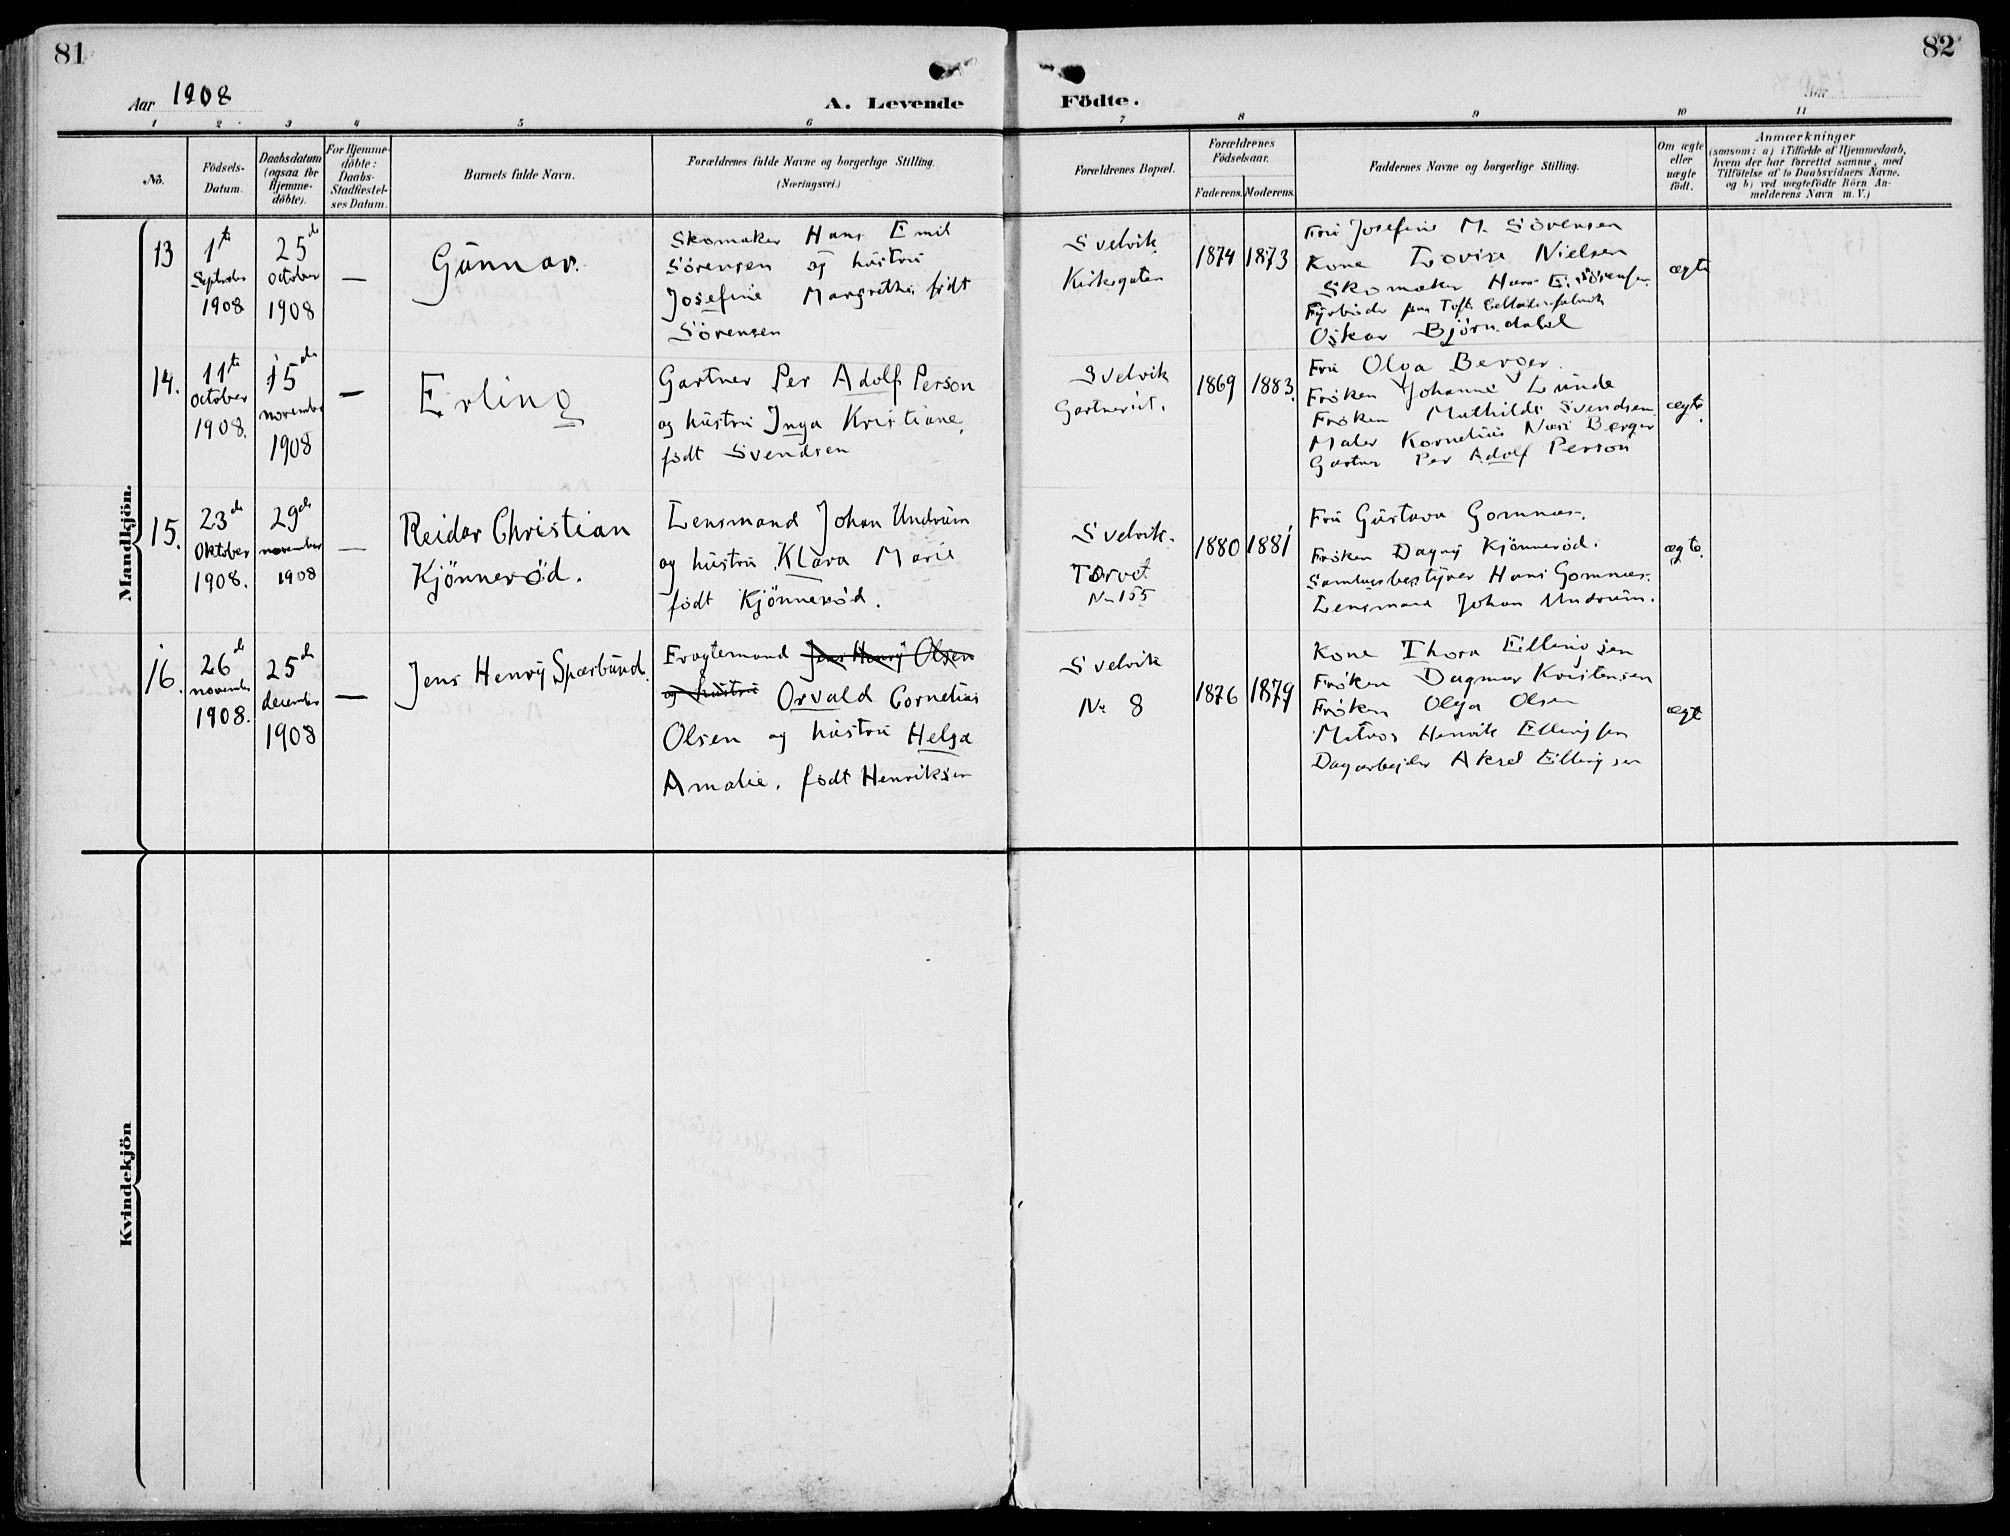 81
Aar 1908
A. Levende
Födte.
82
1 2 3 4 5 6 7 8 9 10 11
No.
Födsels-
Datum.
Daabsdatum
(ogsaa for
Hjemme-
döbte).
For Hjemme-
döbte:
Daabs-
Stadfæstel-
ses Datum.
Barnets fulde Navn.
Forældrenes fulde Navne og borgerlige Stilling.
(Næringsvei.)
Forældrenes Bopæl.
Forældrenes
Födselsaar.
Faderens. Moderens.
Faddernes Navne og borgerlige Stilling.
Om ægte
eller
uægte
født.
Anmærkninger
(saasom: a) i Tilfælde af Hjemmedaab,
hvem der har forrettet samme, med
Tilföielse af to Daabsvidners Navne,
og b) ved uægtefödte Börn An-
melderens Navn m. V.)
Mandkjön.
13
1te
September
1908
25de
October
1908
—
Gunnar.
Skomaker Hans Emil
Sörensen og hustru
Josefine Margrethe født
Sörensen
Svelvik
Kirkegaten
1874
1873
Fru Josefine M. Sörensen
Kone Lovise Nielsen
Skomaker Hans E. Sörensen
Fyrbøder paa Tofte Cellulosefabrik
Oskar Björndahl
ægte
14.
11te
October
1908.
15de
november
1908
—
Erling
Gartner Per Adolf Person
og hustru Inga Kristiane,
født Svendsen
Svelvik
Gartneriet.
1869
1883.
Fru Olga Berger.
Frøken Johanne Lunde
Frøken Mathilde Svendsen
Maler Kornelius Næss Berger
Gartner Per Adolf Person
ægte.
15.
23de
Oktober
1908.
29de
november
1908
—
Reidar Christian
Kjönneröd.
Lensmand Johan Undrum
og hustru Klara Marie
født Kjönneröd.
Svelvik.
Torvet
No 155
1880
1881
Fru Gustava Gomnæs.
Frøken Dagny Kjönneröd.
Samlagsbestyrer Hans Gomnæs.
Lensmand Johan Undrum.
ægte.
16.
26de
november
1908.
25de
december
1908
—
Jens Henry Sparbund.
Fragtemand Jens Henry Olsen
og hustru Orvald Cornelius
Olsen og hustru Helga
Amalie, født Henriksen
Svelvik
No 8
1876
1879
Kone Thora Ellingsen
Frøken Dagmar Kristensen
Frøken Olga Olsen
Matros Henrik Ellingsen
Dagarbejder Aksel Ellingsen
ægte
Kvindekjön